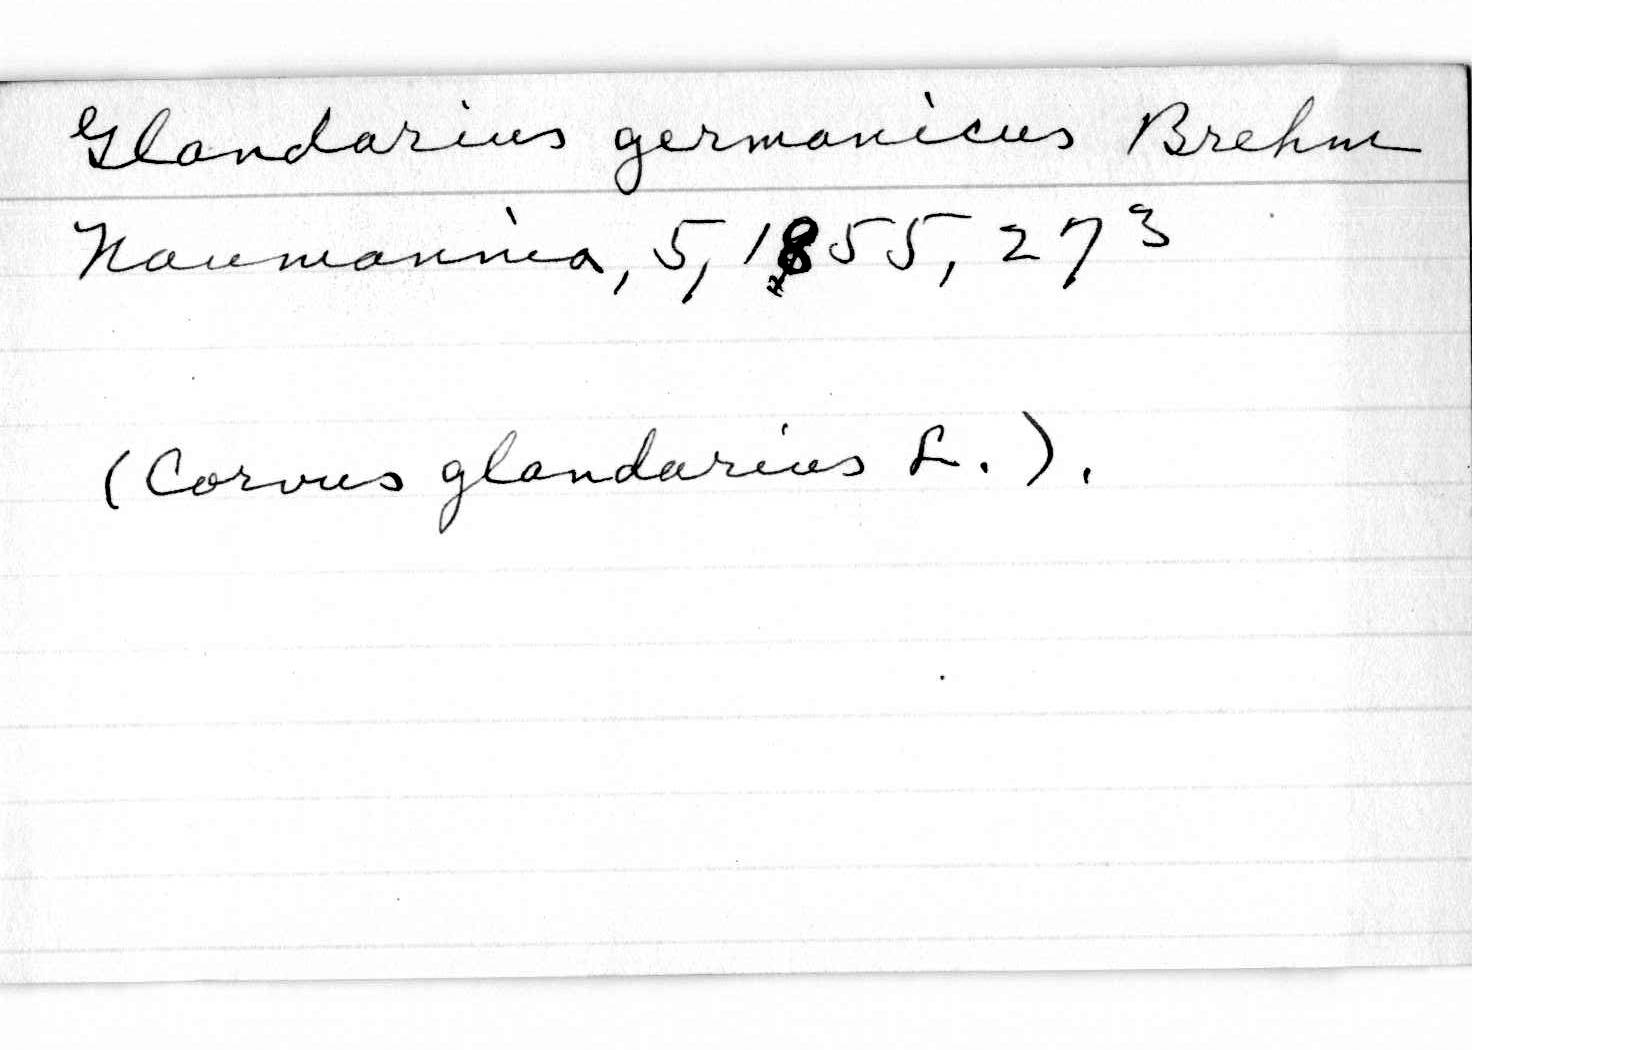 Glandarius germanicus Brehm
Naumannia, 5, 1855, 273
(Corvus glandarius L.).